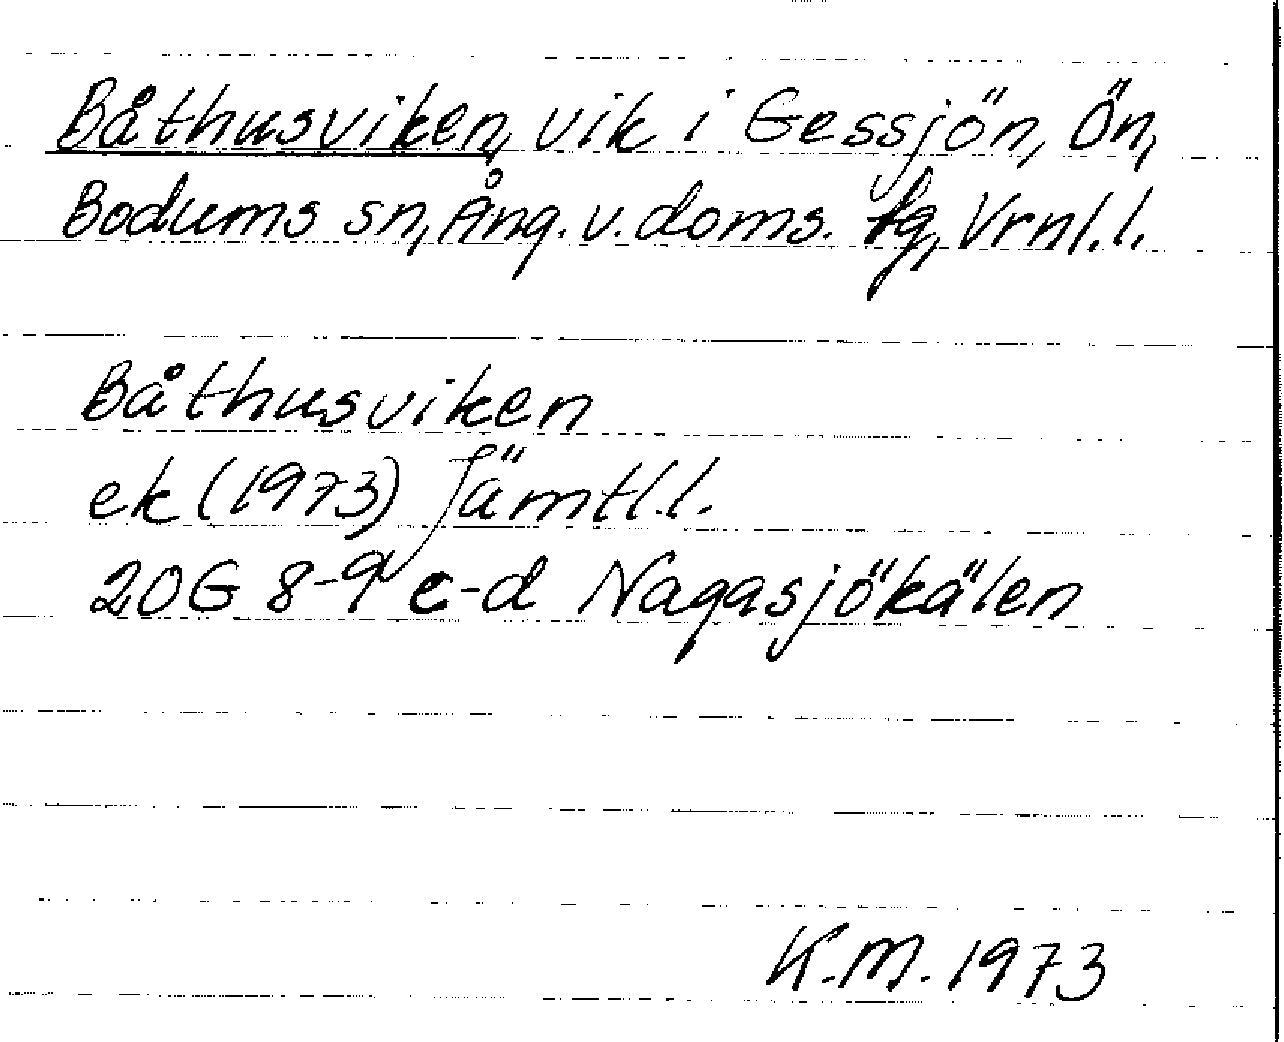 Båthusviken, vik i Gessjön, Ön,
Bodums sn, Ång. v. doms. fg, Vrnl. l.
Båthusviken
ek (1973) Jämtl. l.
20G 8-9 c-d Nagasjökälen
K.M. 1973